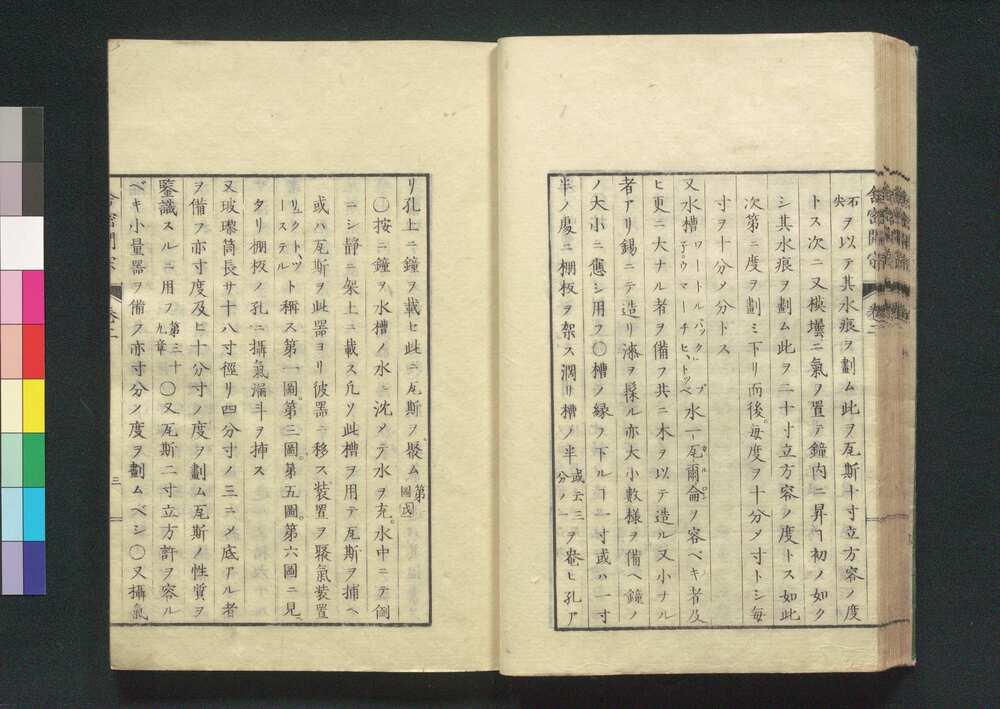 尖石ヲ以テ其水痕ヲ劃ム此ヲ瓦斯十寸立方容ノ度
トス次ニ又坱壜ニ氣ヲ置テ鐘内ニ昇ヿ初ノ如ク
シ其水痕ヲ劃ム此ヲ二十寸立方容ノ度トス如此
次第ニ度ヲ劃ミ下リ而後毎度ヲ十分メ寸トシ毎
寸ヲ十分メ分トス
又水槽ワートルバック、プ子ウマーチヒ、トッベ水一瓦爾侖ヲ容ベキ者及
ヒ更ニ大ナル者ヲ備フ共ニ木ヲ以テ造ル又小ナル
者アリ錫ニテ造リ漆ヲ髹ル亦大小數様ヲ備ヘ鐘ノ
ノ大小ニ應シ用フ〇槽ノ縁ヲ下ルヿ一寸或ハ一寸
半ノ處ニ棚板ヲ架ス濶リ槽ノ半或云三分ノ一ヲ奄ヒ孔ア
リ孔上ニ鐘ヲ載セ此ニ瓦斯ヲ聚ム第弐圖
〇按ニ鐘ヲ水槽ノ水ニ沈メテ水ヲ充。水中ニテ倒
ニシ静ニ架上ニ載ス凡ソ此槽ヲ用テ瓦斯ヲ捕ヘ
或ハ瓦斯ヲ此器ヨリ彼器ニ移ス装置ヲ聚氣装置
リュクトツーステルト稱ス第一圖。第三圖。第五圖。第六圖ニ見ユ
タリ棚板ノ孔ニ攝氣漏斗ヲ挿ス
又玻璨筒長サ十八寸徑リ四分寸ノ三ニメ底アル者
ヲ備フ亦寸度及ヒ十分寸ノ度ヲ劃ム瓦斯ノ性質ヲ
鑒識スルニ用フ第三十九章〇又瓦斯二寸立方許ヲ容ル
ベキ小量器ヲ備フ亦寸分ノ度ヲ劃ムベシ〇又攝氣
舎密開宗
卷二
三